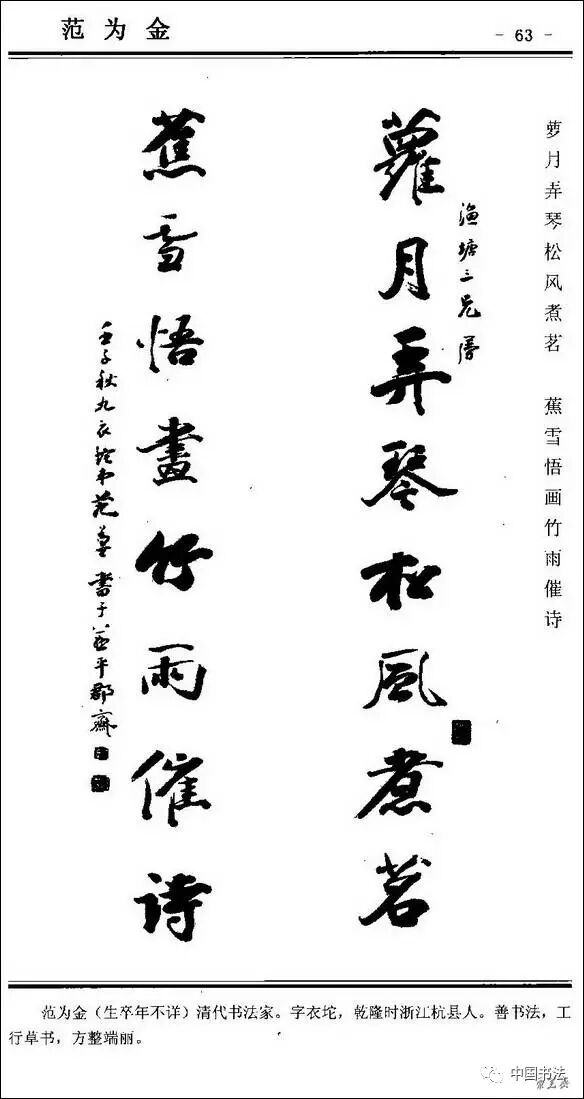 范为金
- 63 -
萝月弄琴松风煮茗 蕉雪悟画竹雨催诗
渔塘三兄属
蘿月弄琴松風煮茗
蕉雪悟畫竹雨催诗
壬子秋九衣
書于
平郡齋
范为金（生卒年不详）清代书法家。字衣坨，乾隆时浙江杭县人。善书法，工
行草书，方整端丽。
中国书法